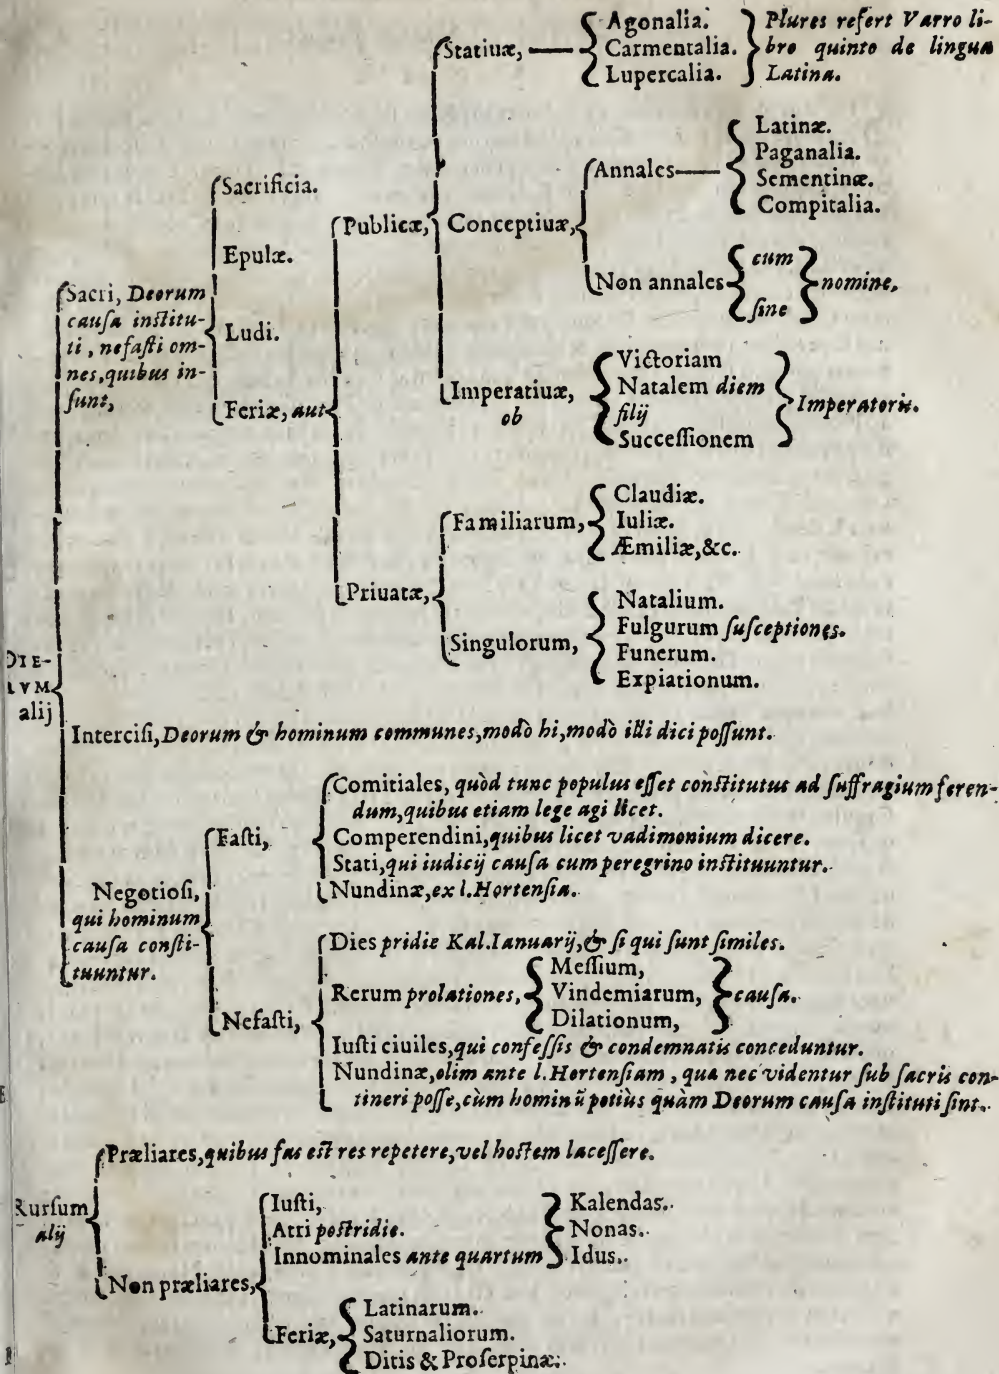 Statiuæ,
Agonalia.
Carmentalia.
Lupercalia.
Plures refert Varro li-
bro quinto de lingua
Latina.
Conceptiuæ,
Annales
Latinæ.
Paganalia.
Sementinæ.
Compitalia.
Non annales
cum
ſine
nomine,
Imperatiuæ,
ob
Victoriam
Natalem diem
filij
Succeſſionem
Imperatoris.
Sacri, Deorum
cauſa inſtitu-
ti, nefaſti om-
nes, quibus in-
ſunt,
Sacrificia.
Epulæ.
Ludi.
Feriæ, aut
Publicæ,
Priuatæ,
Familiarum,
Claudiæ.
Iuliæ.
Æmiliæ,&c.
Singulorum,
Natalium.
Fulgurum ſuſceptiones.
Funerum.
Expiationum.
DIE-
alij
Interciſi, Deorum & hominum communes, modò hi, modò illi dici poſſunt.
Negotioſi,
qui hominum
cauſa conſti-
tuuntur.
Faſti,
Comitiales, quòd tunc populus eſſet conſtitutus ad ſuffragium feren-
dum, quibus etiam lege agi licet.
Comperendini, quibus licet vadimonium dicere.
Stati, qui iudicij cauſa cum peregrino inſtituuntur.
Nundinæ, ex l. Hortenſia.
Nefaſti,
Dies pridie Kal. Ianuarij, & ſi qui ſunt ſimiles.
Rerum prolationes,
Meſſium,
Vindemiarum,
Dilationum,
cauſa.
Iuſti ciuiles, qui confeſſis & condemnatis conceduntur.
Nundinæ, olim ante l. Hortenſiam, qua nec videntur ſub ſacris con-
tineri poſſe, cùm hominũ potiùs quàm Deorum cauſa inſtituti ſint.
Rurſum
alij
Præliares, quibus fas eſt res repetere, vel hoſtem laceſſere.
Non præliares,
Iuſti,
Atri poſtridie.
Innominales ante quartum
Kalendas.
Nonas.
Idus.
Feriæ,
Latinarum.
Saturnaliorum.
Ditis & Proſerpinæ.